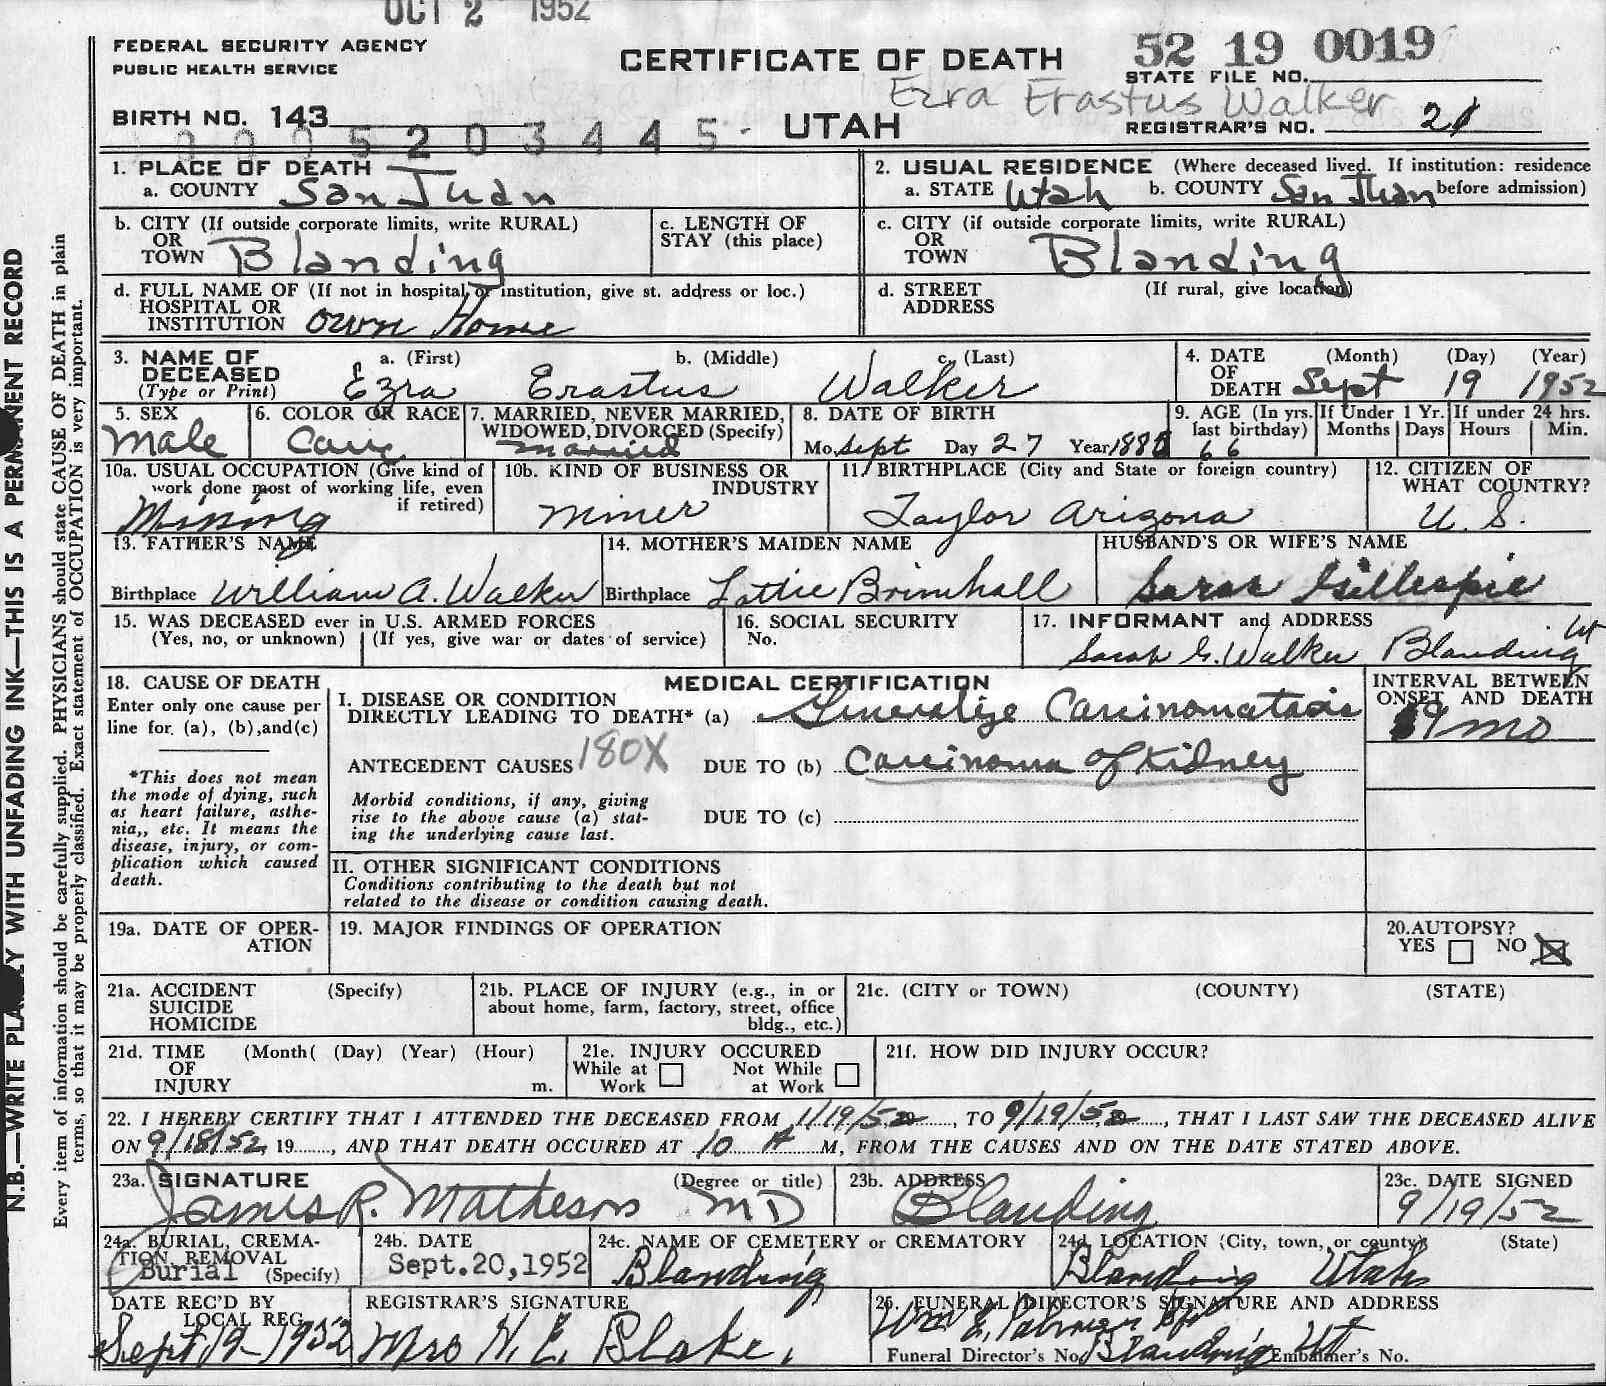 OCT 2 1952
FEDERAL SECURITY AGENCY
PUBLIC HEALTH SERVICE
CERTIFICATE OF DEATH
52 19 0019
STATE FILE NO.
Ezra Erastus Walker
BIRTH NO. 143
0005203445
UTAH
REGISTRAR'S NO. 21
1. PLACE OF DEATH
a. COUNTY San Juan
2. USUAL RESIDENCE (Where deceased lived. If institution: residence
a. STATE Utah b. COUNTY San Juan before admission)
b. CITY (If outside corporate limits, write RURAL)
OR
TOWN Blanding
c. LENGTH OF
STAY (this place)
c. CITY (if outside corporate limits, write RURAL)
OR
TOWN Blanding
d. FULL NAME OF (If not in hospital or institution, give st. address or loc.)
HOSPITAL OR
INSTITUTION own Home
d. STREET (If rural, give location)
ADDRESS
3. NAME OF DECEASED
(Type or Print)
a. (First) b. (Middle) c. (Last)
Ezra Erastus Walker
4. DATE OF DEATH (Month) (Day) (Year)
Sept 19 1952
5. SEX
Male
6. COLOR OR RACE
Cauc
7. MARRIED, NEVER MARRIED,
WIDOWED, DIVORCED (Specify)
married
8. DATE OF BIRTH
Mo. Sept Day 27 Year
9. AGE (In yrs. last birthday)
66
If Under 1 Yr.
Months Days
If under 24 hrs.
Hours Min.
10a. USUAL OCCUPATION (Give kind of
work done most of working life, even
if retired)
Mining
10b. KIND OF BUSINESS OR
INDUSTRY
Miner
11. BIRTHPLACE (City and State or foreign country)
Taylor Arizona
12. CITIZEN OF
WHAT COUNTRY?
U. S.
13. FATHER'S NAME
Birthplace William A. Walker
14. MOTHER'S MAIDEN NAME
Birthplace Lottie Brimhall
HUSBAND'S OR WIFE'S NAME
Sarah Gillespie
15. WAS DECEASED ever in U.S. ARMED FORCES
(Yes, no, or unknown) (If yes, give war or dates of service)
16. SOCIAL SECURITY
No.
17. INFORMANT and ADDRESS
Sarah G. Walker Blanding Ut
18. CAUSE OF DEATH
Enter only one cause per
line for. (a), (b),and(c)
*This does not mean
the mode of dying, such
as heart failure, asthe-
nia,, etc. It means the
disease, injury, or com-
plication which caused
death.
MEDICAL CERTIFICATION
I. DISEASE OR CONDITION
DIRECTLY LEADING TO DEATH* (a) Generalize Carcinomatosis
180X
ANTECEDENT CAUSES DUE TO (b) Carcinoma of Kidney
Morbid conditions, if any, giving
rise to the above cause (a) stat-
ing the underlying cause last.
DUE TO (c)
INTERVAL BETWEEN
ONSET AND DEATH
9 mo
II. OTHER SIGNIFICANT CONDITIONS
Conditions contributing to the death but not
related to the disease or condition causing death.
19a. DATE OF OPER-
ATION
19. MAJOR FINDINGS OF OPERATION
20.AUTOPSY?
YES NO
21a. ACCIDENT (Specify)
SUICIDE
HOMICIDE
21b. PLACE OF INJURY (e.g., in or
about home, farm, factory, street, office
bldg., etc.)
21c. (CITY or TOWN) (COUNTY) (STATE)
21d. TIME (Month( (Day) (Year) (Hour)
OF
INJURY m.
21e. INJURY OCCURED
While at Work Not While at Work
21f. HOW DID INJURY OCCUR?
22. I HEREBY CERTIFY THAT I ATTENDED THE DECEASED FROM 1/19/52, TO 9/19/52, THAT I LAST SAW THE DECEASED ALIVE
ON 9/18/52, 19......., AND THAT DEATH OCCURED AT 10 A M, FROM THE CAUSES AND ON THE DATE STATED ABOVE.
23a. SIGNATURE (Degree or title)
James R. Matheson MD
23b. ADDRESS
Blanding
23c. DATE SIGNED
9/19/52
24a. BURIAL, CREMA-
TION, REMOVAL
Burial (Specify)
24b. DATE
Sept.20,1952
24c. NAME OF CEMETERY or CREMATORY
Blanding
24d. LOCATION (City, town, or county) (State)
Blanding Utah
DATE REC'D BY
LOCAL REG.
Sept 19-1952
REGISTRAR'S SIGNATURE
Mrs H. E. Blake.
25. FUNERAL DIRECTOR'S SIGNATURE AND ADDRESS
Wm E. Palmer
Blanding Ut
Funeral Director's No. Embalmer's No.
N.B.—WRITE PLAINLY WITH UNFADING INK—THIS IS A PERMANENT RECORD
Every item of information should be carefully supplied. PHYSICIANS should state CAUSE OF DEATH in plain
terms, so that it may be properly classified. Exact statement of OCCUPATION is very important.